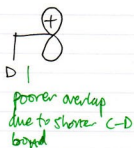 +
D
poorer overlap
due to shorter C-D
bond